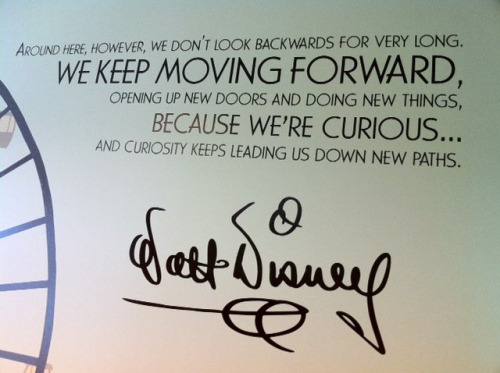 AROUND HERE, HOWEVER, WE DON'T LOOK BACKWARDS FOR VERY LONG.
WE KEEP MOVING FORWARD,
OPENING UP NEW DOORS AND DOING NEW THINGS,
BECAUSE WE'RE CURIOUS...
AND CURIOSITY KEEPS LEADING US DOWN NEW PATHS.
Walt Disney